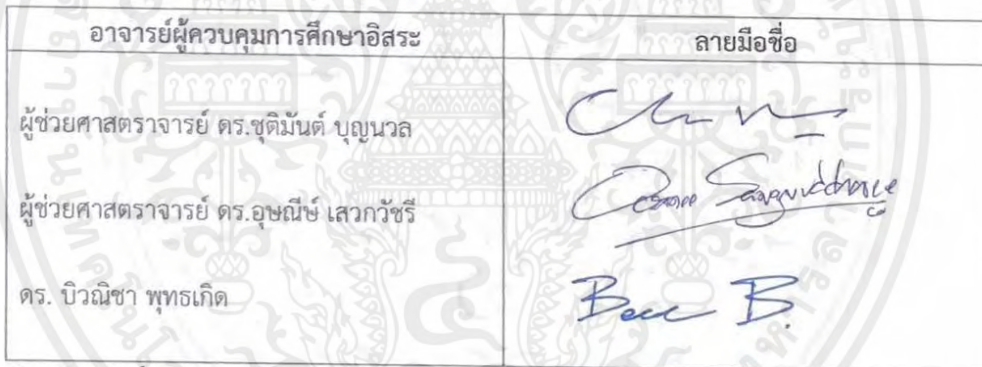 อาจารย์ผู้ควบคุมการศึกษาอิสระ ลายมือชื่อ
ผู้ช่วยศาสตราจารย์ ดร.ชุติมันต์ บุญนวล
ผู้ช่วยศาสตราจารย์ ดร.อุษณีษ์ เสวกวัชรี
ดร. บิวณิชา พุทธเกิด B.